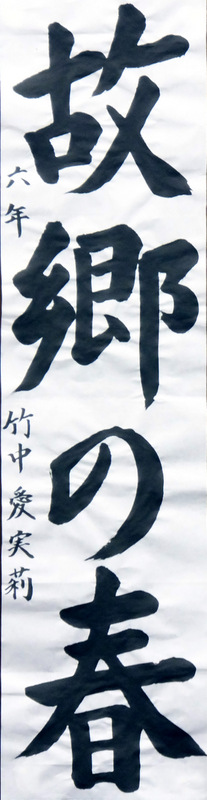 故郷の春
六年 竹中愛実莉